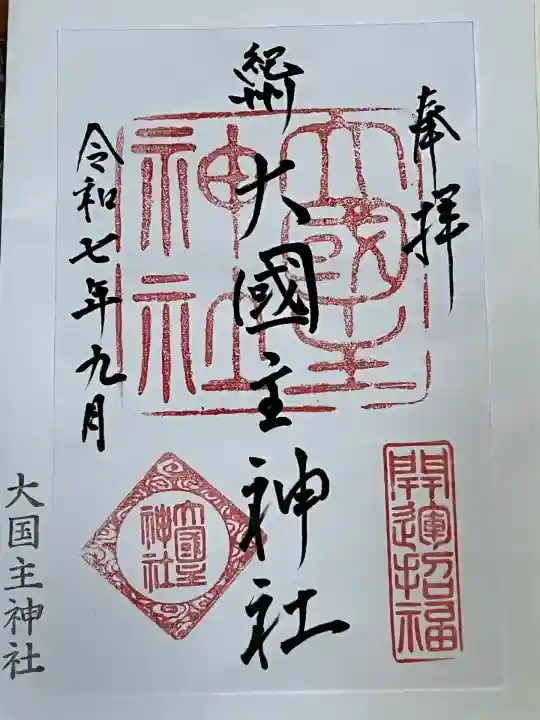 奉拝
紀州
大國主神社
令和七年九月
大國主神社
開運招福
大國主神社
大国主神社